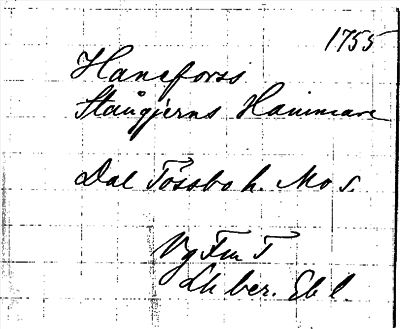 1755
Hanefors
Stångjerns Hammare
Dal Tössbo h. Mo s.
Vg Fm T
Lh ber. Eb l.